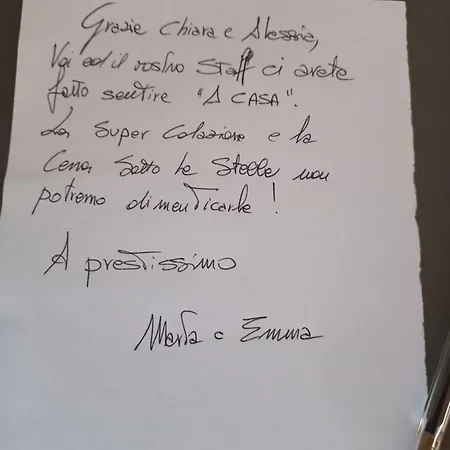 Grazie Chiara e Alessia,
Voi ed il vostro Staff ci avete
fatto sentire "A CASA".
La Super Colazione e la
Cena Sotto le Stelle non
potremo dimenticarle!
A prestissimo
Marta e Emma